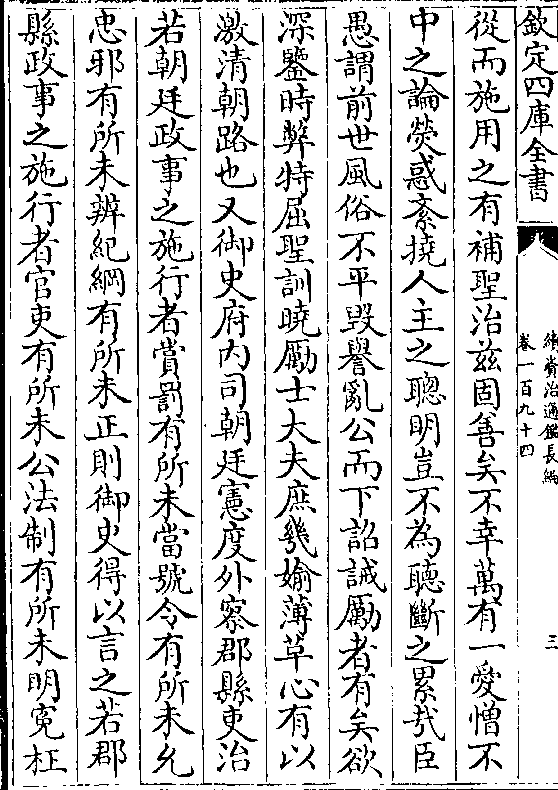 欽定四庫全書
續資治通鑑長編
卷一百九十四
三
從而施用之有補聖治兹固善矣不幸萬有一愛憎不
中之論熒惑紊撓人主之聰明豈不為聽斷之累㢤臣
愚謂前世風俗不平毁譽亂公而下詔誡勵者有矣欲
深鑒時弊特屈聖訓曉勵士大夫庶幾婾薄革心有以
激清朝路也又御史府内司朝廷憲度外察郡縣吏治
若朝廷政事之施行者賞罰有所未當號令有所未允
忠邪有所未辨紀綱有所未正則御史得以言之若郡
縣政事之施行者官吏有所未公法制有所未明寃枉